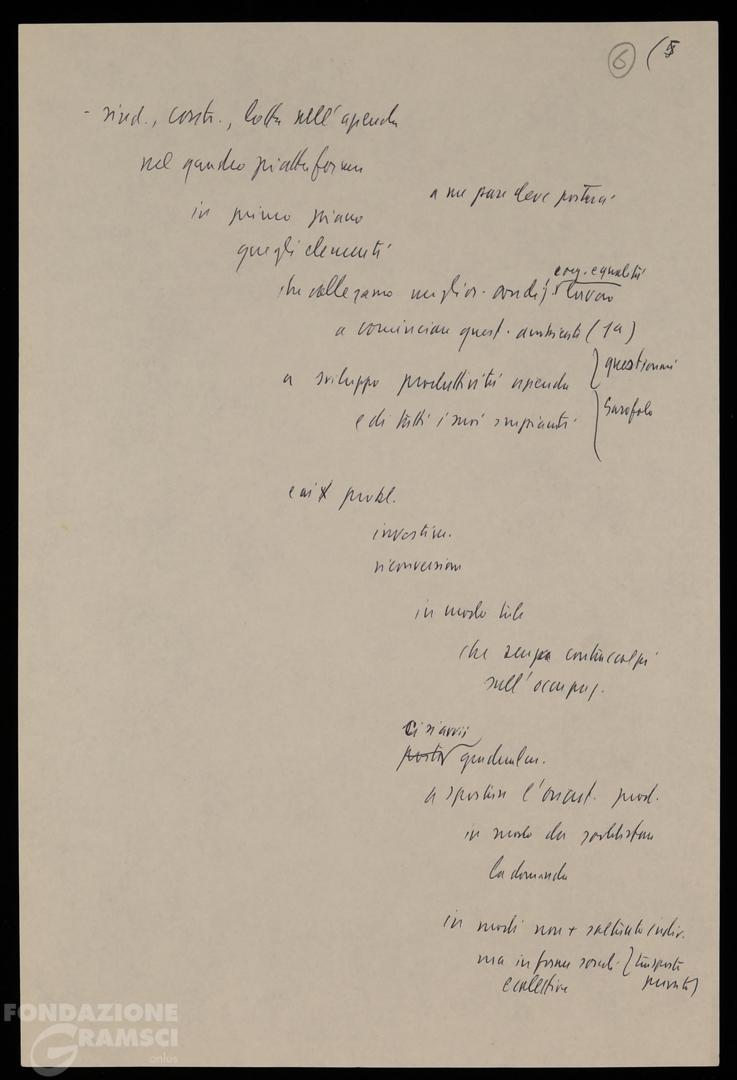 6 (5
- sind., contr., lotta nell'azienda
nel quadro piattaforma
a me pare deve portarsi
in primo piano
quegli elementi
che collegano miglior. condiz. lavoro
eog. egualità
a cominciare quest. ambiente (1a)
a sviluppo produttività azienda
} questionari
e di tutti i suoi impianti
Garofalo
e ai probl.
investim.
riconversione
in modo tale
che senza contraccolpi
sull'occupaz.
ci si avvii
gradualm.
a spostare l'orient. prod.
in modo da soddisfare
la domanda
in modi non + soltanto indiv.
ma in forme sociali (trasporti
e collettive
privati)
FONDAZIONE
GRAMSCI
onlus